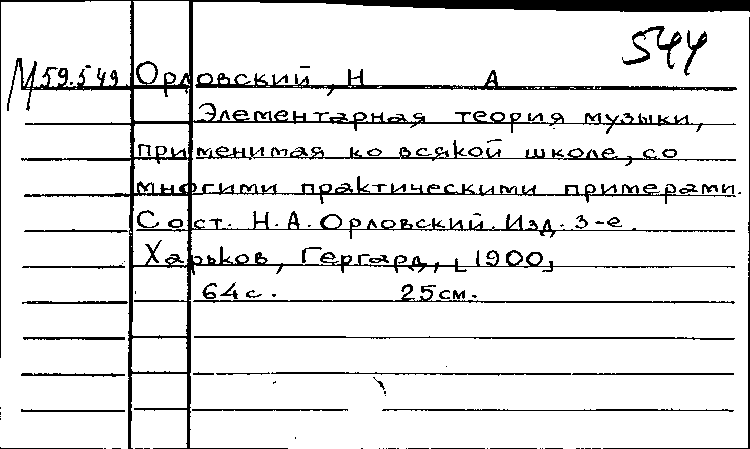 544
М59.549 Орловский, Н А
Элементарная теория музыки,
применимая ко всякой школе, со
многими практическими примерами.
Сост. Н.А.Орловский. Изд. 3-е.
Харьков, Гергард, [1900]
64с. 25см.